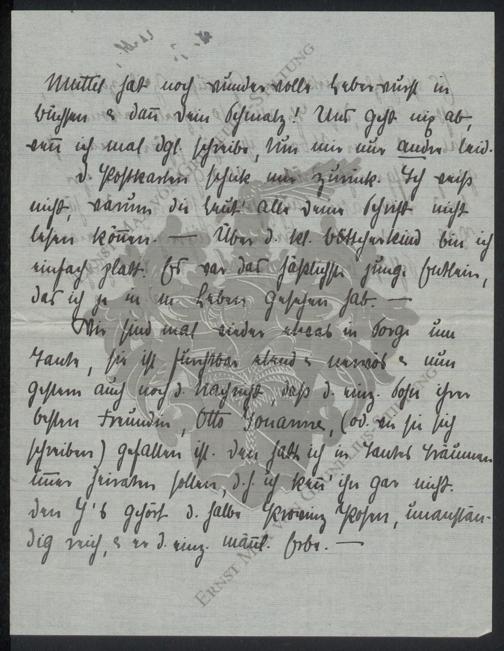 Mutter hat noch wundervolle Leberwurst in
Büchsen & dann Dein Schmalz! Uns geht nix ab,
wenn ich mal dgl. schreibe, tun mir nur andre leid.
D. Postkarten schick mir zurück. Ich weiß
nicht, warum die Leut' alle Deine Schrift nicht
lesen können. — Über d. kl. Böttcherkind bin ich
einfach platt. Es war das häßlichste junge Entlein,
das ich je in m Leben gesehen hab. —
Wir sind mal wieder etwas in Sorge um
Tante, sie ist furchtbar elend & nervös & nun
gestern auch noch d. Nachricht, daß d. einz. Sohn ihrer
besten Freundin, Otto (od. wie sie sich
schreiben) gefallen ist. Den hätt ich in Tantes Träumen
immer heiraten sollen, d.h. ich kenn' ihn gar nicht.
Den J's gehört d. halbe Provinz Posen, unanstän-
dig reich, & er d. einz. männl. Erbe. —
ERNST MAX VON CORNELIUS-STIFTUNG